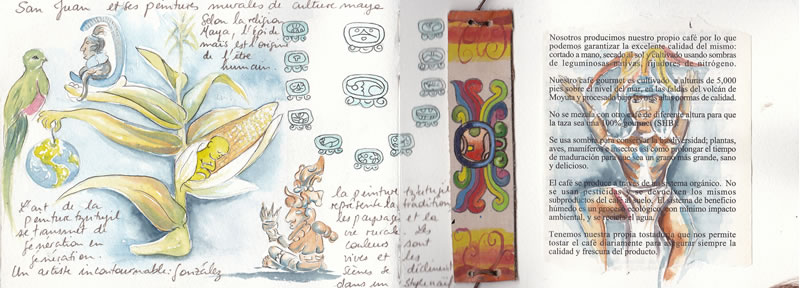 San Juan et ses peintures murales de culture maya
Selon la religion
Maya, l'épi de
maïs est l'origine
de l'être
humain.
L'art de la
peinture tzutujil
se transmet de
génération en
génération.
Un artiste incontournable: González
la peinture tzutujil
représente la tradition
les paysages et la
vie rurale. Les
couleurs sont
vives et les
scènes de
dans un style naïf
Nosotros producimos nuestro propio café por lo que
podemos garantizar la excelente calidad del mismo:
cortado a mano, secado al sol y cultivado usando sombras
de leguminosas nativas, fijadores de nitrógeno.
Nuestro café gourmet es cultivado en alturas de 5,000
pies sobre el nivel del mar, en las faldas del volcán de
Moyuta y procesado bajo las más altas normas de calidad.
No se mezcla con otro café de diferente altura para que
la taza sea una 100% gourmet (SHB).
Se usa sombra para conservar la biodiversidad; plantas,
aves, mamíferos e insectos así como prolongar el tiempo
de maduración para que sea un grano más grande, sano
y delicioso.
El café se produce a través de un sistema orgánico. No
se usan pesticidas y se devuelven los mismos
subproductos del café al suelo. El sistema de beneficio
húmedo es un proceso ecológico, con mínimo impacto
ambiental, y se recicla el agua.
Tenemos nuestra propia tostaduría que nos permite
tostar el café diariamente para asegurar siempre la
calidad y frescura del producto.